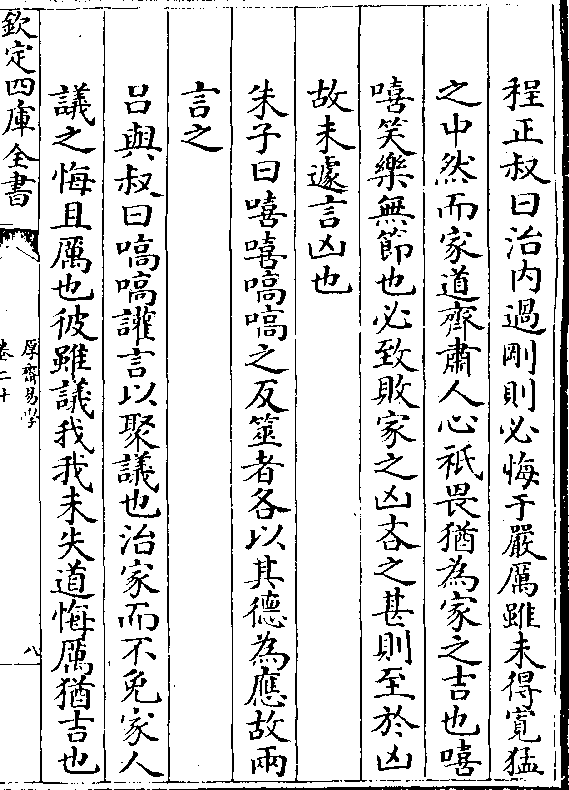 程正叔曰治内過剛則必悔于嚴厲雖未得寛猛
之中然而家道齊肅人心祗畏猶為家之吉也嘻
嘻笑樂無節也必致敗家之凶吝之甚則至於凶
故未遽言凶也
朱子曰嘻嘻嗃嗃之反筮者各以其德為應故兩
言之
吕與叔曰嗃嗃讙言以聚議也治家而不免家人
議之悔且厲也彼雖議我我未失道悔厲猶吉也
欽定四庫全書
厚齋易學
卷二十
八